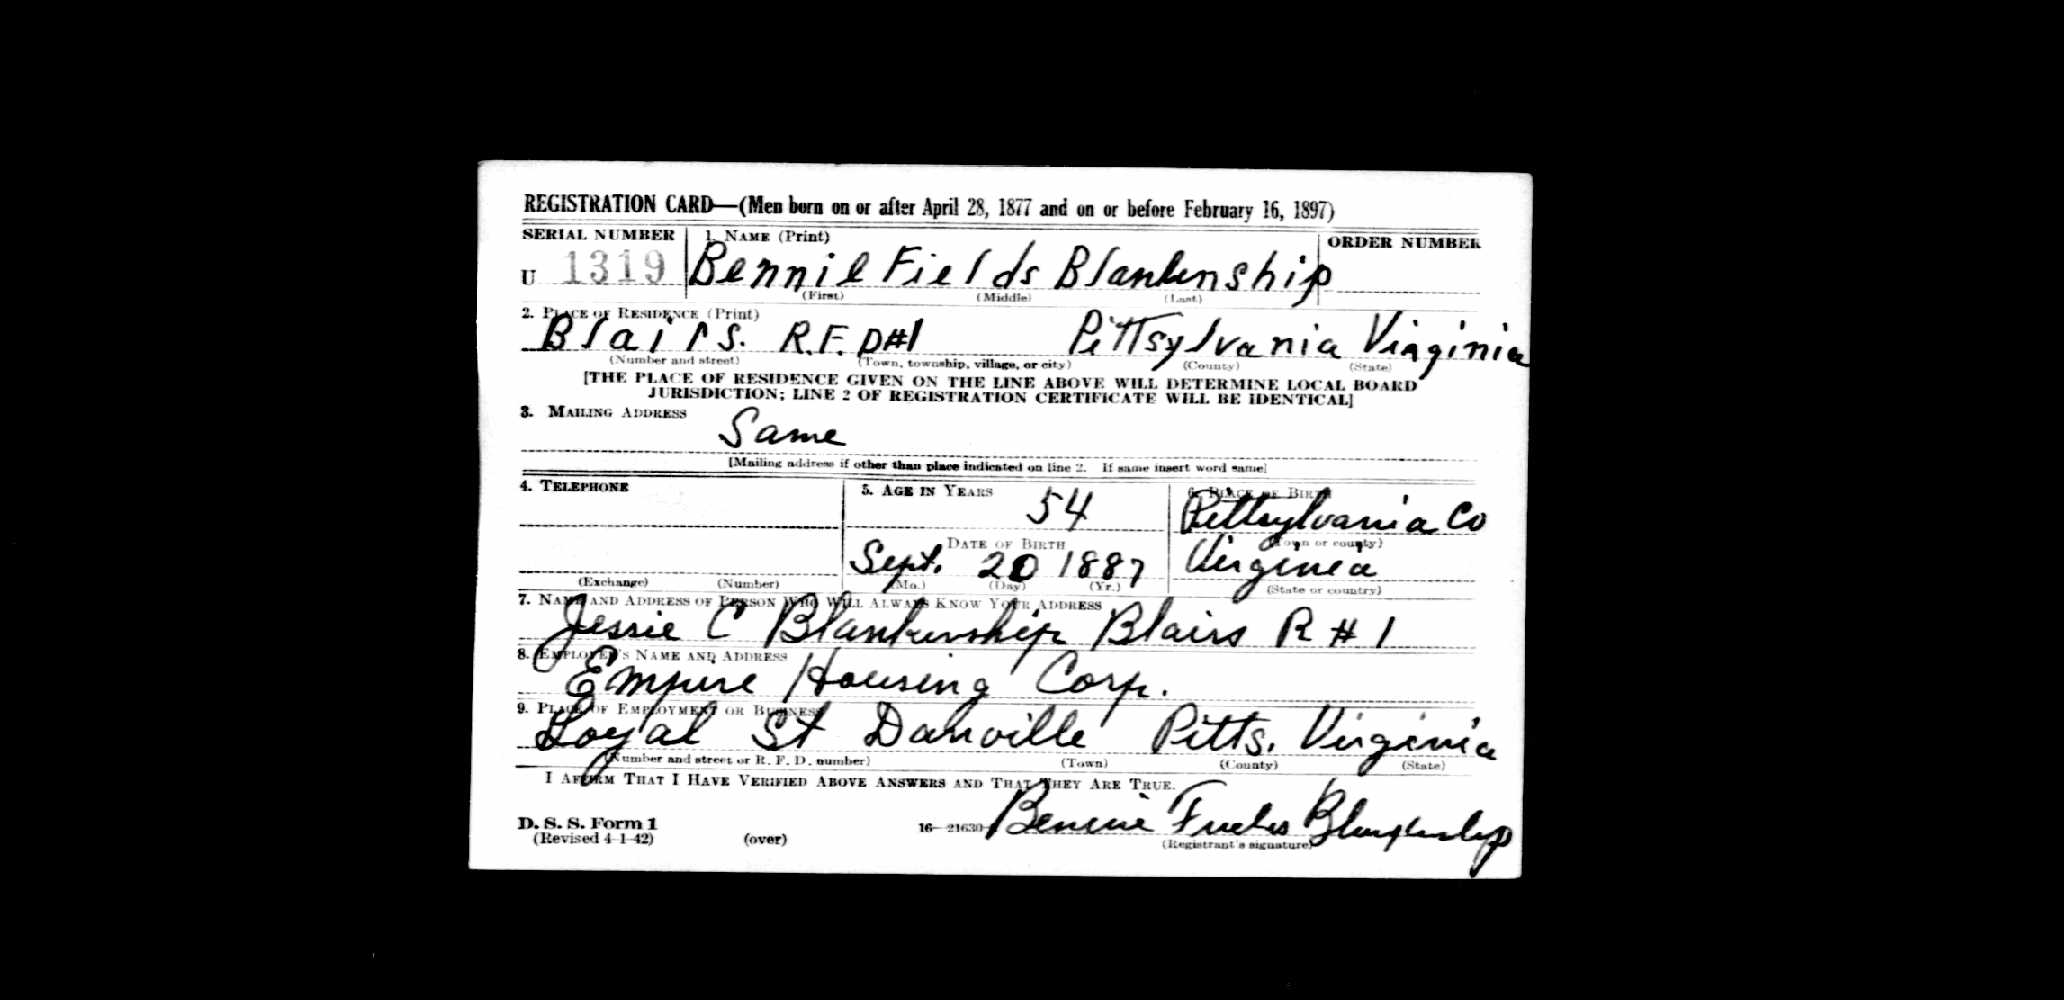 REGISTRATION CARD—(Men born on or after April 28, 1877 and on or before February 16, 1897)
SERIAL NUMBER 1. NAME (Print) ORDER NUMBER
U 1319 Bennie Fields Blankenship
(First) (Middle) (Last)
2. PLACE OF RESIDENCE (Print)
Blairs. R.F.D#1 Pittsylvania Virginia
(Number and street) (Town, township, village, or city) (County) (State)
[THE PLACE OF RESIDENCE GIVEN ON THE LINE ABOVE WILL DETERMINE LOCAL BOARD
JURISDICTION; LINE 2 OF REGISTRATION CERTIFICATE WILL BE IDENTICAL]
3. MAILING ADDRESS
Same
[Mailing address if other than place indicated on line 2. If same insert word same]
4. TELEPHONE 5. AGE IN YEARS 6. PLACE OF BIRTH
54 Pittsylvania Co
DATE OF BIRTH (Town or county)
Sept. 20 1887 Virginia
(Exchange) (Number) (Mo.) (Day) (Yr.) (State or country)
7. NAME AND ADDRESS OF PERSON WHO WILL ALWAYS KNOW YOUR ADDRESS
Jessie C Blankenship Blairs R # 1
8. EMPLOYER'S NAME AND ADDRESS
Empire Housing Corp.
9. PLACE OF EMPLOYMENT OR BUSINESS
Loyal St Danville Pitts. Virginia
(Number and street or R. F. D. number) (Town) (County) (State)
I AFFIRM THAT I HAVE VERIFIED ABOVE ANSWERS AND THAT THEY ARE TRUE.
D. S. S. Form 1 16—21630 Bennie Fields Blankenship
(Revised 4-1-42) (over) (Registrant's signature)